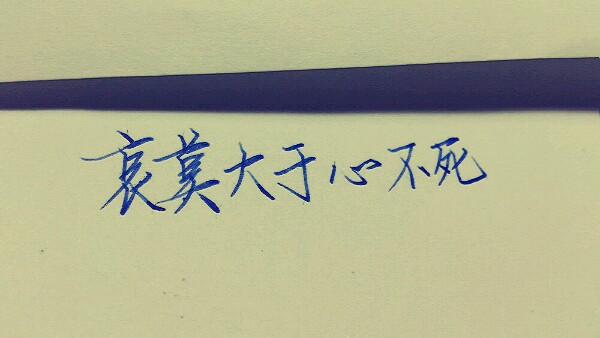 哀莫大于心不死